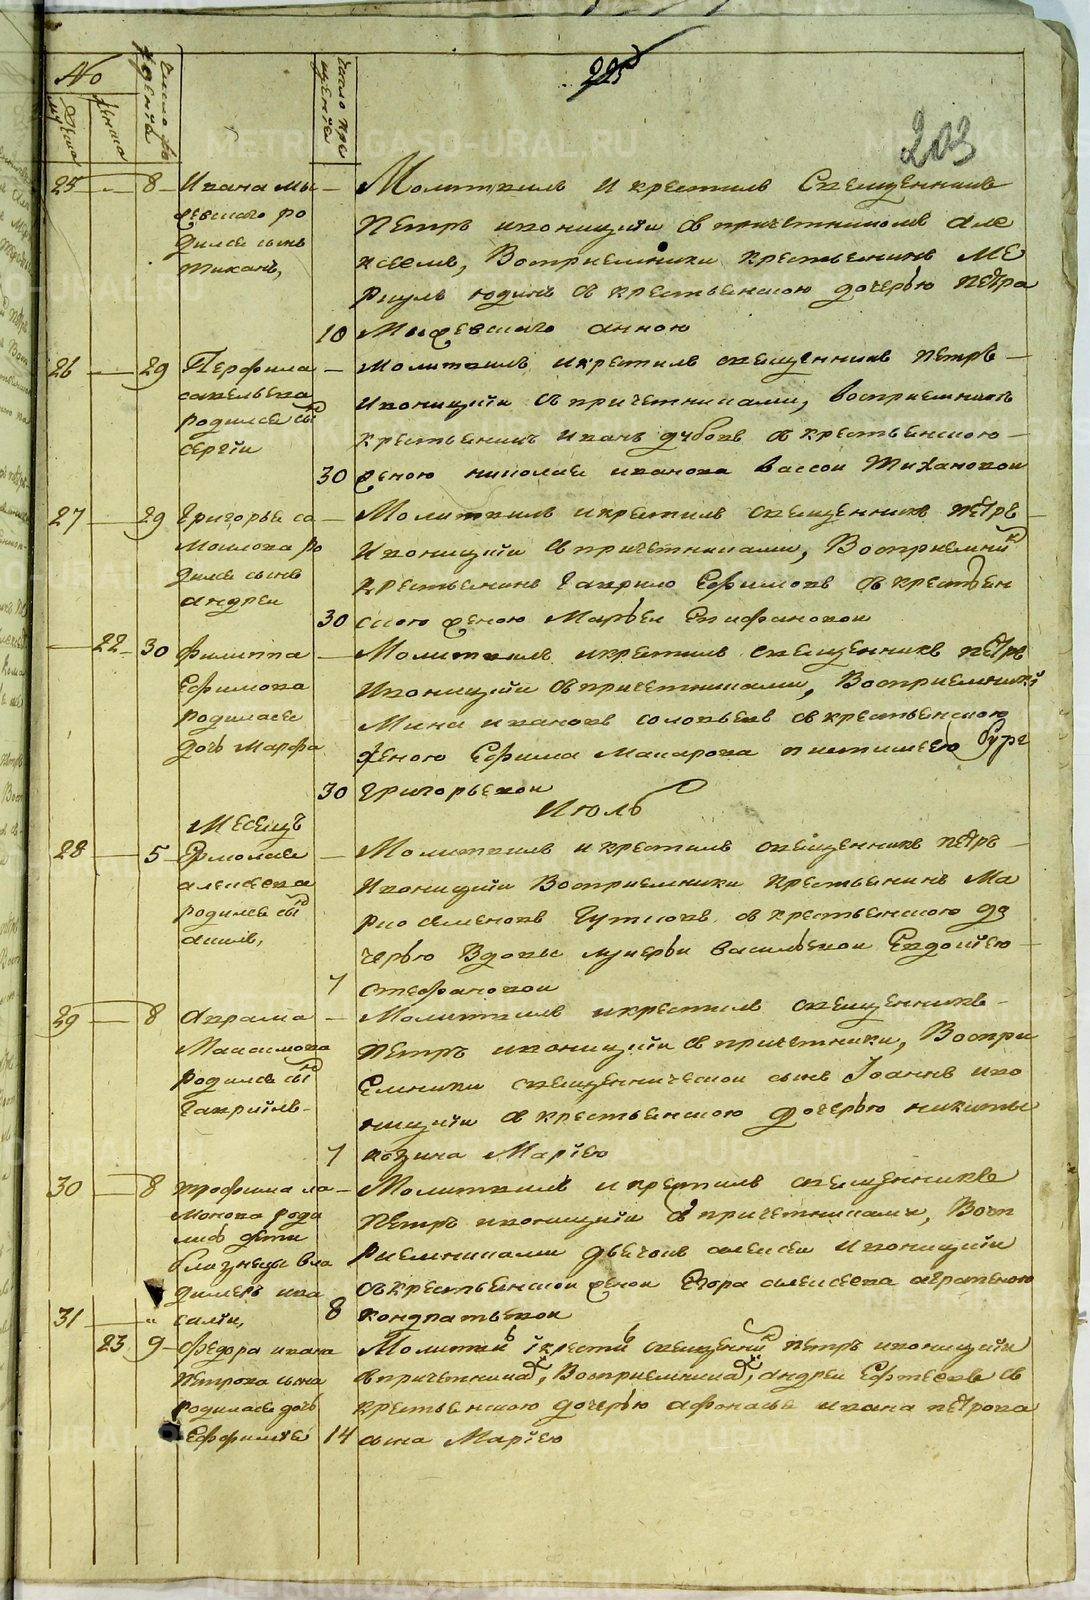 No
мужеска
женска
число рождения
число крещения
225
203
25 8 Ивана Мы
шевского ро
дился сынъ
Тиханъ,
Молитвилъ и крестилъ Священникъ
Петръ Иконицкiй съ причетникомъ Але
ксеемъ, Восприемники крестьенинъ Ме
ркулъ Юдинъ съ крестьенскою дочерью Петра
10 Мышевского Анною
26 29 Перфила
Савельева
родился сынъ
Сергiй
Молитвилъ и крестилъ священникъ Петръ
Иконицкiй съ причетниками, восприемникъ
крестьенинъ Иванъ с крестьенскою
30 женою Николая Иванова Вассой Тихановой
27 29 Григорья Са
мойлова ро
дился сынъ
Андрей
Молитвилъ и крестилъ священникъ Петръ
Иконицкiй съ причетниками, Восприемникъ
крестьенинъ Гаврило Ефимовъ съ крестьен
30 скою женою Марьей Епифановой
22 30 Филиппа
Ефимова
родилася
дочь Марфа
Молитвилъ и крестилъ священникъ Петръ
Иконицкiй съ причетниками, Восприемники
Мина Ивановъ Соловьевъ съ крестьенскою
женою Ефима Макарова
30 Григорьевой
Месецъ Июль
28 5 Ермолая
Алексеева
родился сынъ
Акимъ,
Молитвилъ и крестилъ священникъ Петръ
Иконицкiй Восприемники крестьенинъ Ма
рко Семеновъ съ крестьенскою до
черью Вдовы Лукерьи Васильевой Евдокiею
7 Стефановой
29 8 Аврама
Максимова
родился сынъ
Гаврiилъ
Молитвилъ и крестилъ священникъ
Петръ Иконицкiй съ причетники, Воспри
емники священнической сынъ Iоаннъ Ико
ницкiй съ крестьенскою дочерью Никиты
7 Козина Марiею
30 8 Трофима Ла
монова роди
лись дети
близнецы Вла
димеръ и Ва
31 " силiй,
Молитвилъ и крестилъ священникъ
Петръ Иконицкiй съ причетниками, Восп
риемниками дьячокъ Алексей Иконицкiй
съ крестьенской женой Егора Алексеева
8 Кондратьевой
23 9 Федора Ивана
Петрова сына
родилася дочь
Еффимiя
Молитвилъ i крестилъ священникъ Петръ Иконицкiй
съ причетники, Восприемники, Андрей съ
крестьенскою дочерью Афонасья Ивана Петрова
14 сына Марiею